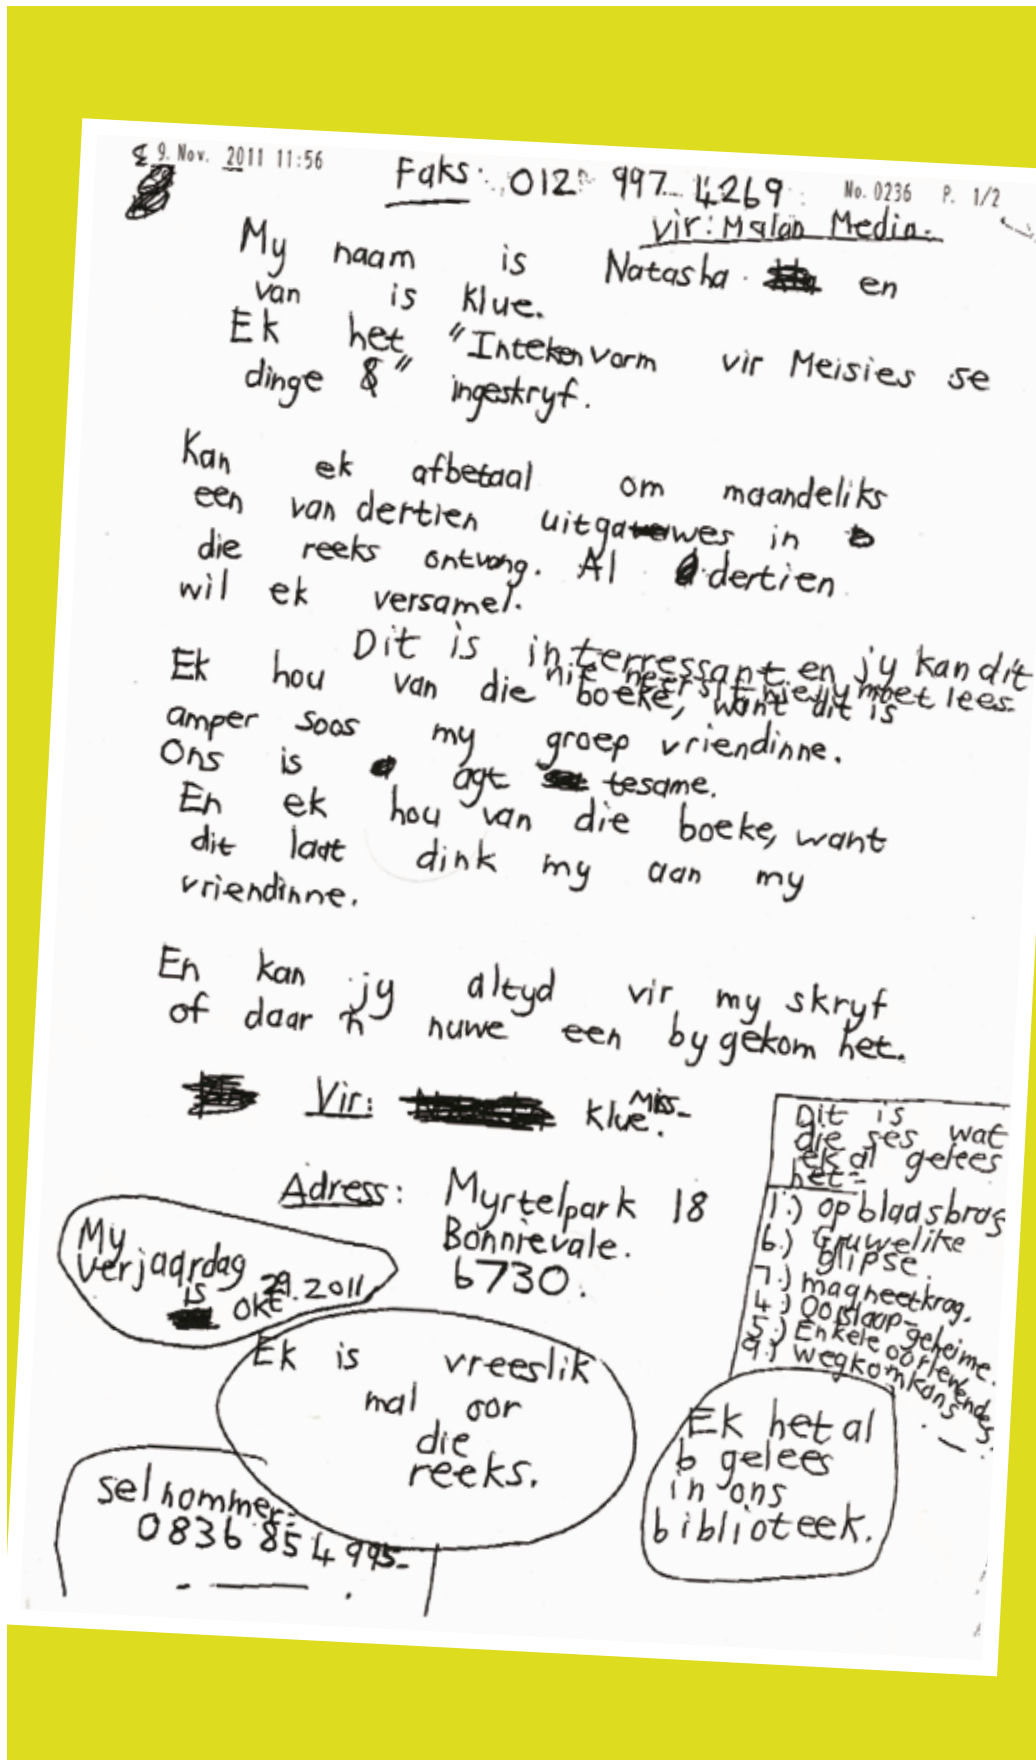 9. Nov. 2011 11:56
Faks: 012 997 4269
No. 0236 P. 1/2
vir: Malan Media.
My naam is Natasha en
van is Klue.
Ek het "Intekenvorm vir Meisies se
dinge 8" ingeskryf.
Kan ek afbetaal om maandeliks
een van dertien uitgawes in
die reeks ontvang. Al dertien
wil ek versamel.
Dit is interressant en jy kan dit
nie neersit nie jy moet lees.
Ek hou van die boeke, want dit is
amper soos my groep vriendinne.
Ons is agt tesame.
En ek hou van die boeke, want
dit laat dink my aan my
vriendinne.
En kan jy altyd vir my skryf
of daar 'n nuwe een by gekom het.
Vir: Klue. Miss-
Adress: Myrtelpark 18
Bonnievale.
6730.
My
verjaardag
is
okt 29.2011
Ek is vreeslik
mal oor
die
reeks.
selnommer:
0836 854 995-
Dit is wat
die ses wat
ek al gelees
het:-
1.) opblaasbras
6.) Gruwelike
glipse.
7.) magneetkrag.
4.) Oorslaap-geheime.
5.) Enkele oorlewendes.
9.) wegkomkans
Ek het al
6 gelees
in ons
biblioteek.